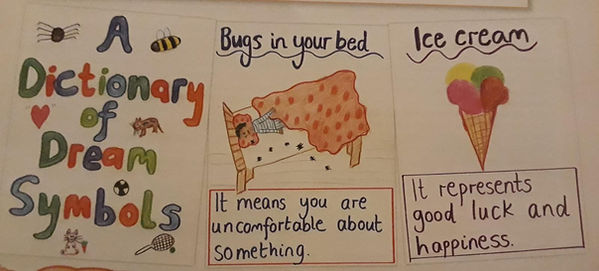 A
Dictionary
of
Dream
Symbols
Bugs in your bed
It means you are
uncomfortable about
something.
Ice cream
It represents
good luck and
happiness.